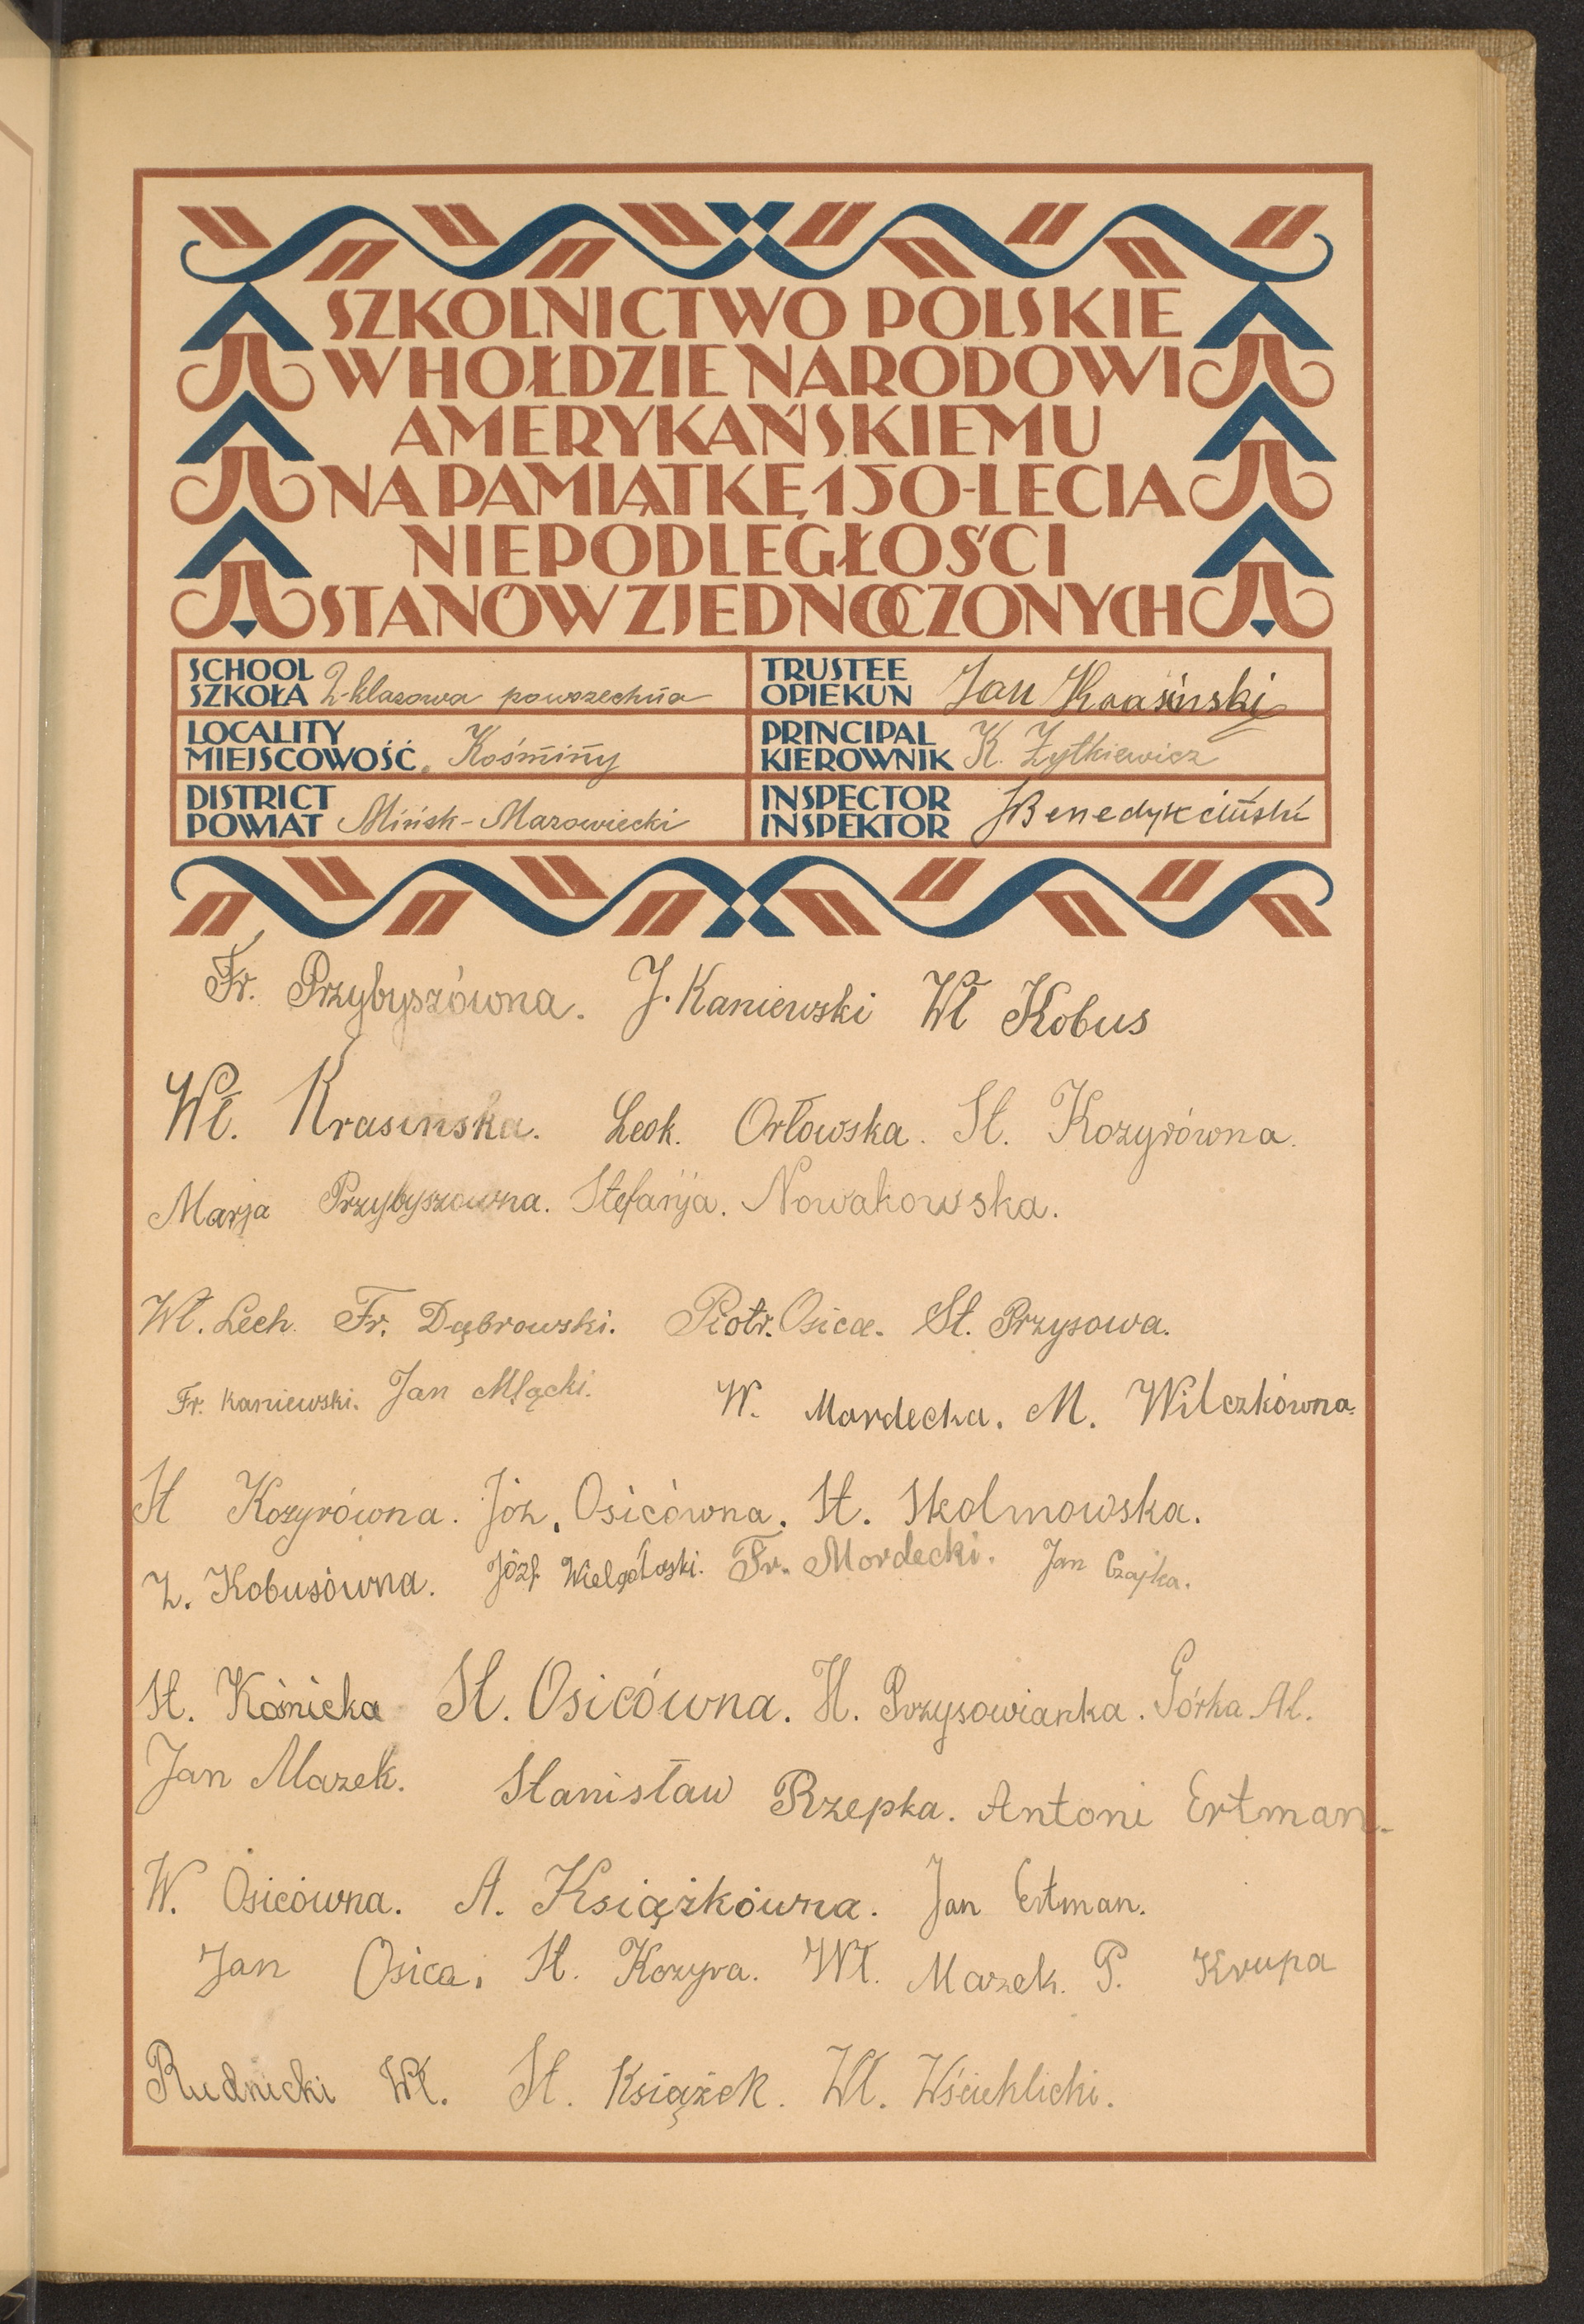 SZKOLNICTWO POLSKIE
W HOŁDZIE NARODOWI
AMERYKAŃSKIEMU
NA PAMIĄTKĘ 150-LECIA
NIEPODLEGŁOŚCI
STANÓW ZJEDNOCZONYCH
SCHOOL
SZKOŁA 2-klasowa powszechna
TRUSTEE
OPIEKUN Jan Krasiński
LOCALITY
MIEJSCOWOŚĆ. Kośminy
PRINCIPAL
KIEROWNIK K. Żytkiewicz
DISTRICT
POWIAT Mińsk-Mazowiecki
INSPECTOR
INSPEKTOR Benedykciński
Fr. Przybyszówna. J. Kaniewski Wł Kobus
Wł. Krasińska. Leok. Orłowska. St. Kozyrówna.
Marja Przybyszówna. Stefanja. Nowakowska.
Wł. Lech. Fr. Dąbrowski. Piotr. Osica. St. Przysowa.
Fr. Kaniewski. Jan Mlącki. W. Mardecka. M. Wilczkówna.
St Kozyrówna. Józ. Osicówna. St. Skolmowska.
Z. Kobusówna. Józf. Wielgołaski. Fr. Mordecki. Jan Czajka.
St. Kośnicka St. Osicówna. H. Przysowianka. Górka Al.
Jan Mazek. Stanisław Rzepka. Antoni Ertman.
W. Osicówna. A. Książkówna. Jan Ertman.
Jan Osica. St. Kozyra. Wł. Mazek. P. Krupa
Rudnicki Wł. St. Książek. Wł. Wścieklicki.